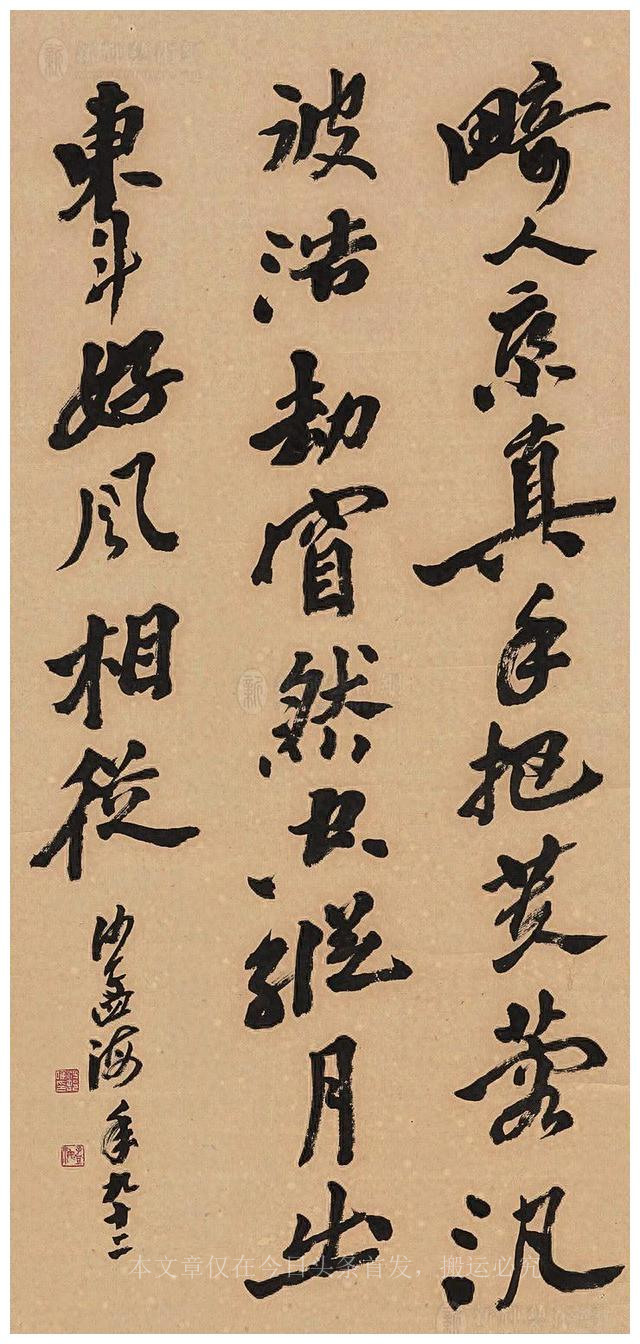 畸人乘真手把芙蓉汎
彼浩劫窅然空蹤月出
東斗好風相從
沙孟海年九十二
本文章仅在今日头条首发，搬运必究